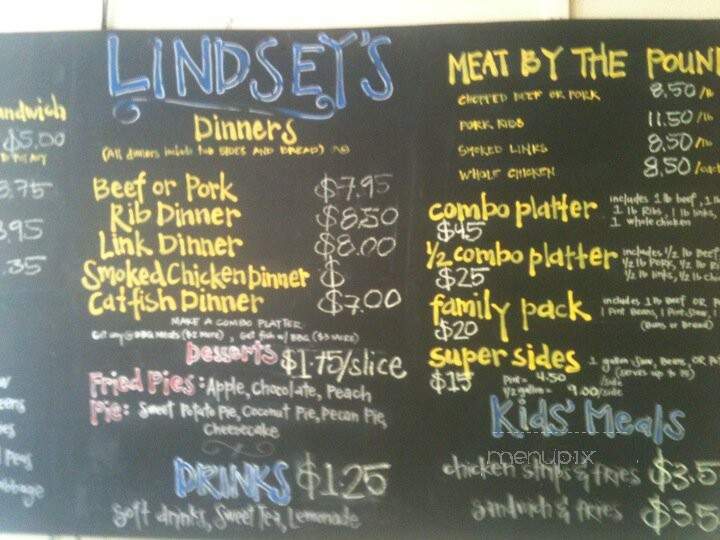 LINDSEY'S
Dinners
(All dinners include two SIDES AND BREAD)
Beef or Pork $7.95
Rib Dinner $8.50
Link Dinner $8.00
Smoked Chicken Dinner $
Catfish Dinner $7.00
MAKE A COMBO PLATTER
Get any BBQ Meats ($2 more), get fish w/ BBQ ($3 more)
Desserts $1.75/slice
Fried Pies: Apple, Chocolate, Peach
Pie: Sweet Potato Pie, Coconut Pie, Pecan Pie,
Cheesecake
DRINKS $1.25
Soft drinks, Sweet Tea, Lemonade
andwich
$5.00
3.75
.95
.35
MEAT BY THE POUN
CHOPPED BEEF OR PORK 8.50/lb
PORK RIBS 11.50/lb
SMOKED LINKS 8.50/lb
WHOLE CHICKEN 8.50/each
combo platter includes 1 lb beef, 1 lb
$45 1 lb Ribs, 1 lb links,
1 whole chicken
1/2 combo platter includes 1/2 lb Beef
$25 1/2 lb Pork, 1/2 lb Ri
1/2 lb links, 1/2 ch
family pack includes 1 lb Beef OR P
$20 1 Pint Beans, 1 Pint Slaw,
(Buns or Bread)
super sides 1 gallon Slaw, Beans, OR Po
$15 (serves up to 35)
Pint = 4.50 /side
1/2 gallon = 9.00/side
Kids' Meals
menupix
chicken strips & fries $3.5
sandwich & fries $3.5